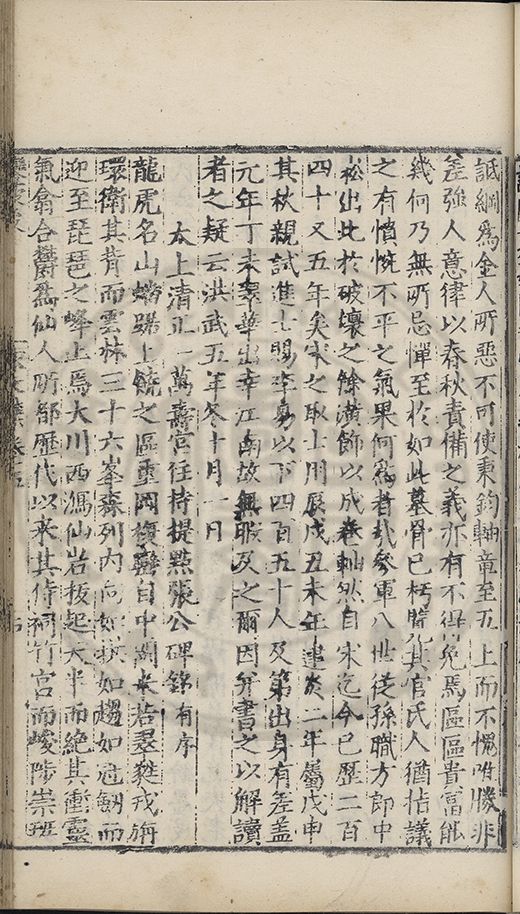 詆綱為金人所惡不可使秉鈞軸章至五上而不愧唯勝非
差強人意律以春秋責備之義亦有不得免焉區區貴富能
幾何乃無所忌憚至於如此墓骨已朽其官氏人猶指議
之有憤惋不平之氣果何為者哉參軍八世從孫職方郎中
崧出此於破壞之餘潢飾以成卷軸然自宋迄今已歷二百
四十又五年矣宋之取士用辰戌丑未年建炎二年屬戊申
其秋親試進士賜李易以下四百五十人及第出身有差蓋
元年丁未翠華出幸江南故無暇及之爾因并書之以解讀
者之疑云洪武五年冬十月一日
太上清正一萬壽宮住持提點張公碑銘有序
龍虎名山蟠踞上饒之區重岡複嶺自中閩來若翠戎旃
環衛其背而雲林三十六峯森列內向如拱如趨如冠劔而
迎至琵琶之峰止焉大川西瀉仙岩拔起天半而絕其衝靈
氣翕合鬱為仙人所部歷代以來其侍祠竹宮而峻陟崇班